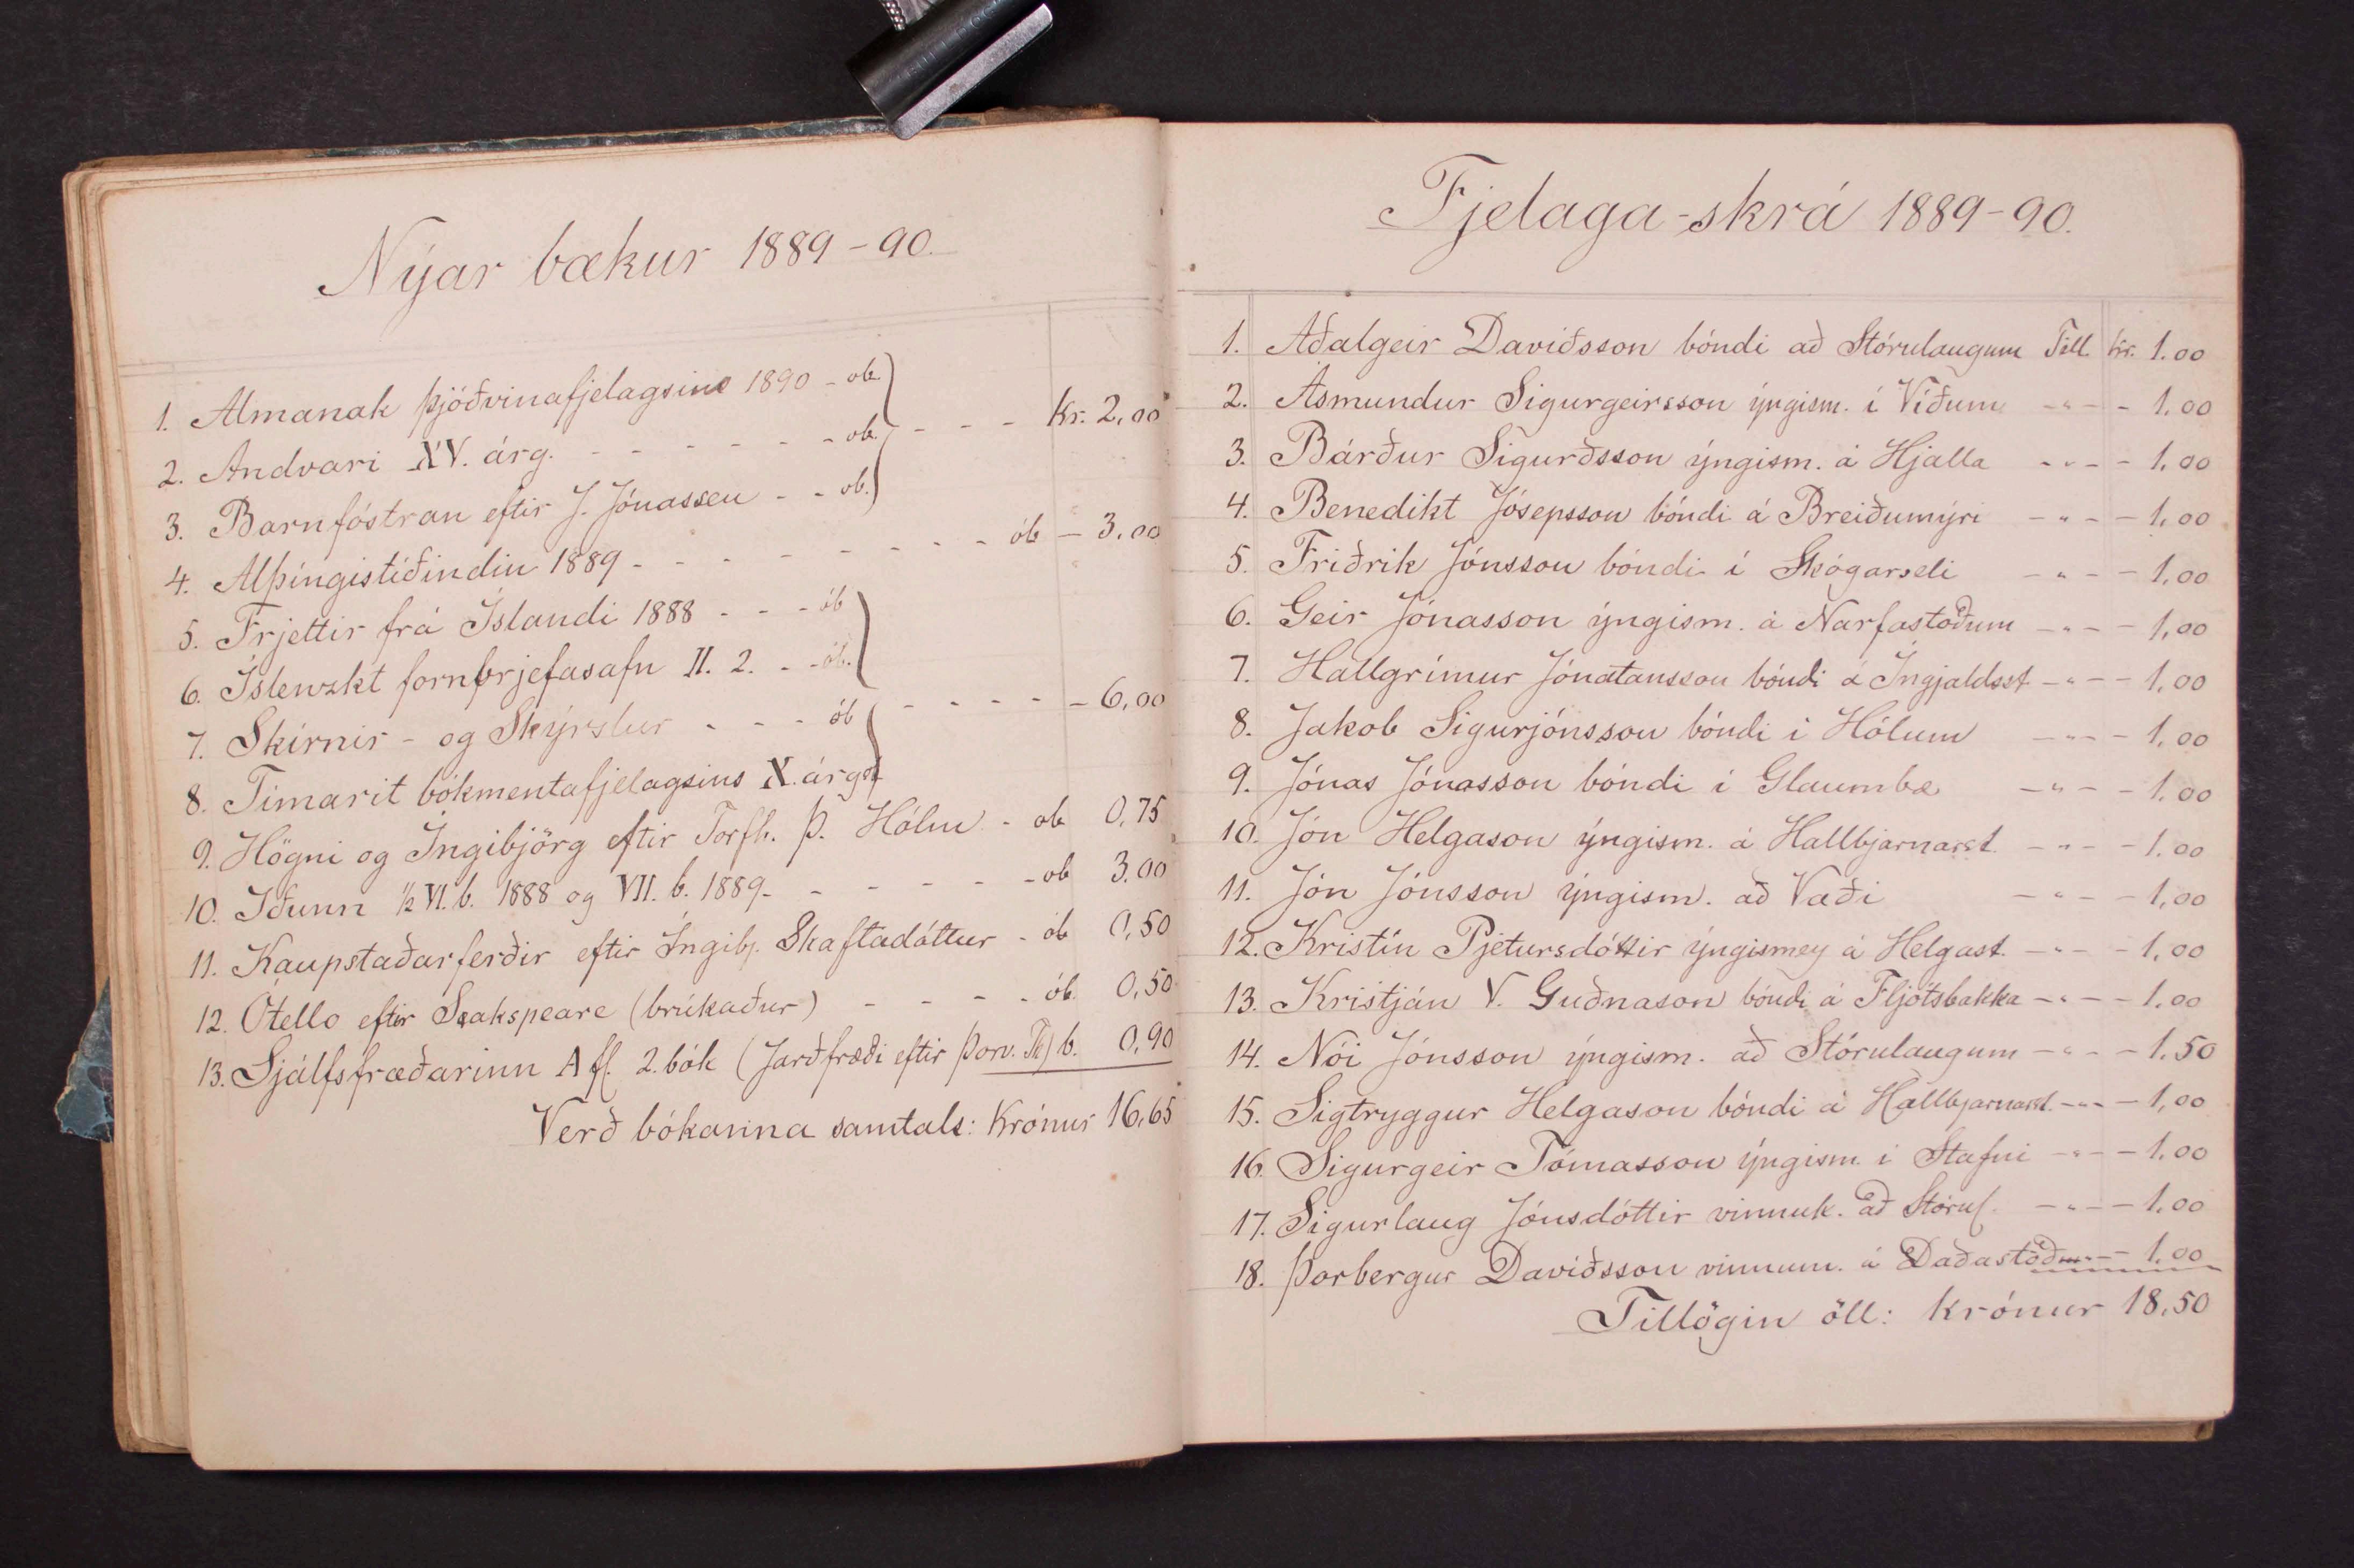 Nýar bækur 1889-90.
1. Almanak þjóðvinafjelagsins 1890 - ob.
2. Andvari XV. árg. - - - - - - ob. - - - Kr. 2,00
3. Barnfóstran eftir J. Jónassen - - ob.
4. Alþingistíðindin 1889 - - - - - - - - ób - 3.00
5. Frjettir frá Íslandi 1888 - - - ób
6. Íslenzkt fornbrjefasafn II. 2. - - ób.
7. Skírnir - og Skýrslur - - - ób - - - - - 6,00
8. Tímarit bókmentafjelagsins X. árg. ób
9. Högni og Ingibjörg eftir Torfh. Þ. Hólm - ob 0,75
10. Iðunn ½ VI. b. 1888 og VII. b. 1889 - - - - - - ob 3.00
11. Kaupstaðarferðir eftir Ingibj. Skaftadóttur - ób 0,50
12. Ótello eftir Seakspeare (brúkaður) - - - - ób. 0,50
13. Sjálfsfræðarinn A fl. 2. bók (Jarðfræði eftir Þorv. Th) b. 0,90
Verð bókanna samtals: Krónur 16,65
Fjelaga-skrá 1889-90.
1. Aðalgeir Davíðsson bóndi að Stórulaugum Till. kr. 1.00
2. Ásmundur Sigurgeirsson ýngism. í Víðum - " - - 1.00
3. Bárður Sigurðsson ýngism. á Hjalla - " - - 1.00
4. Benedikt Jósepsson bóndi á Breiðumýri - " - - 1.00
5. Friðrik Jónsson bóndi í Skógarseli - " - - 1,00
6. Geir Jónasson ýngism. á Narfastöðum - " - - 1,00
7. Hallgrímur Jónatansson bóndi á Ingjaldsst - " - - 1,00
8. Jakob Sigurjónsson bóndi í Hólum - " - - 1,00
9. Jónas Jónasson bóndi í Glaumbæ - " - - 1.00
10. Jón Helgason ýngism. á Hallbjarnarst. - " - - 1.00
11. Jón Jónsson ýngism. að Vaði - " - - 1,00
12. Kristín Pjetursdóttir ýngismey á Helgast. - " - - 1,00
13. Kristján V. Guðnason bóndi á Fljótsbakka - " - - 1.00
14. Nói Jónsson ýngism. að Stórulaugum - " - - 1.50
15. Sigtryggur Helgason bóndi á Hallbjarnarst. - " - - 1,00
16. Sigurgeir Tómasson ýngism. í Stafni - " - - 1.00
17. Sigurlaug Jónsdóttir vinnuk. að Stórul. - " - - 1.00
18. Þorbergur Davíðsson vinnum. á Daðastöðum - " - - 1.00
Tillögin öll: Krónur 18,50